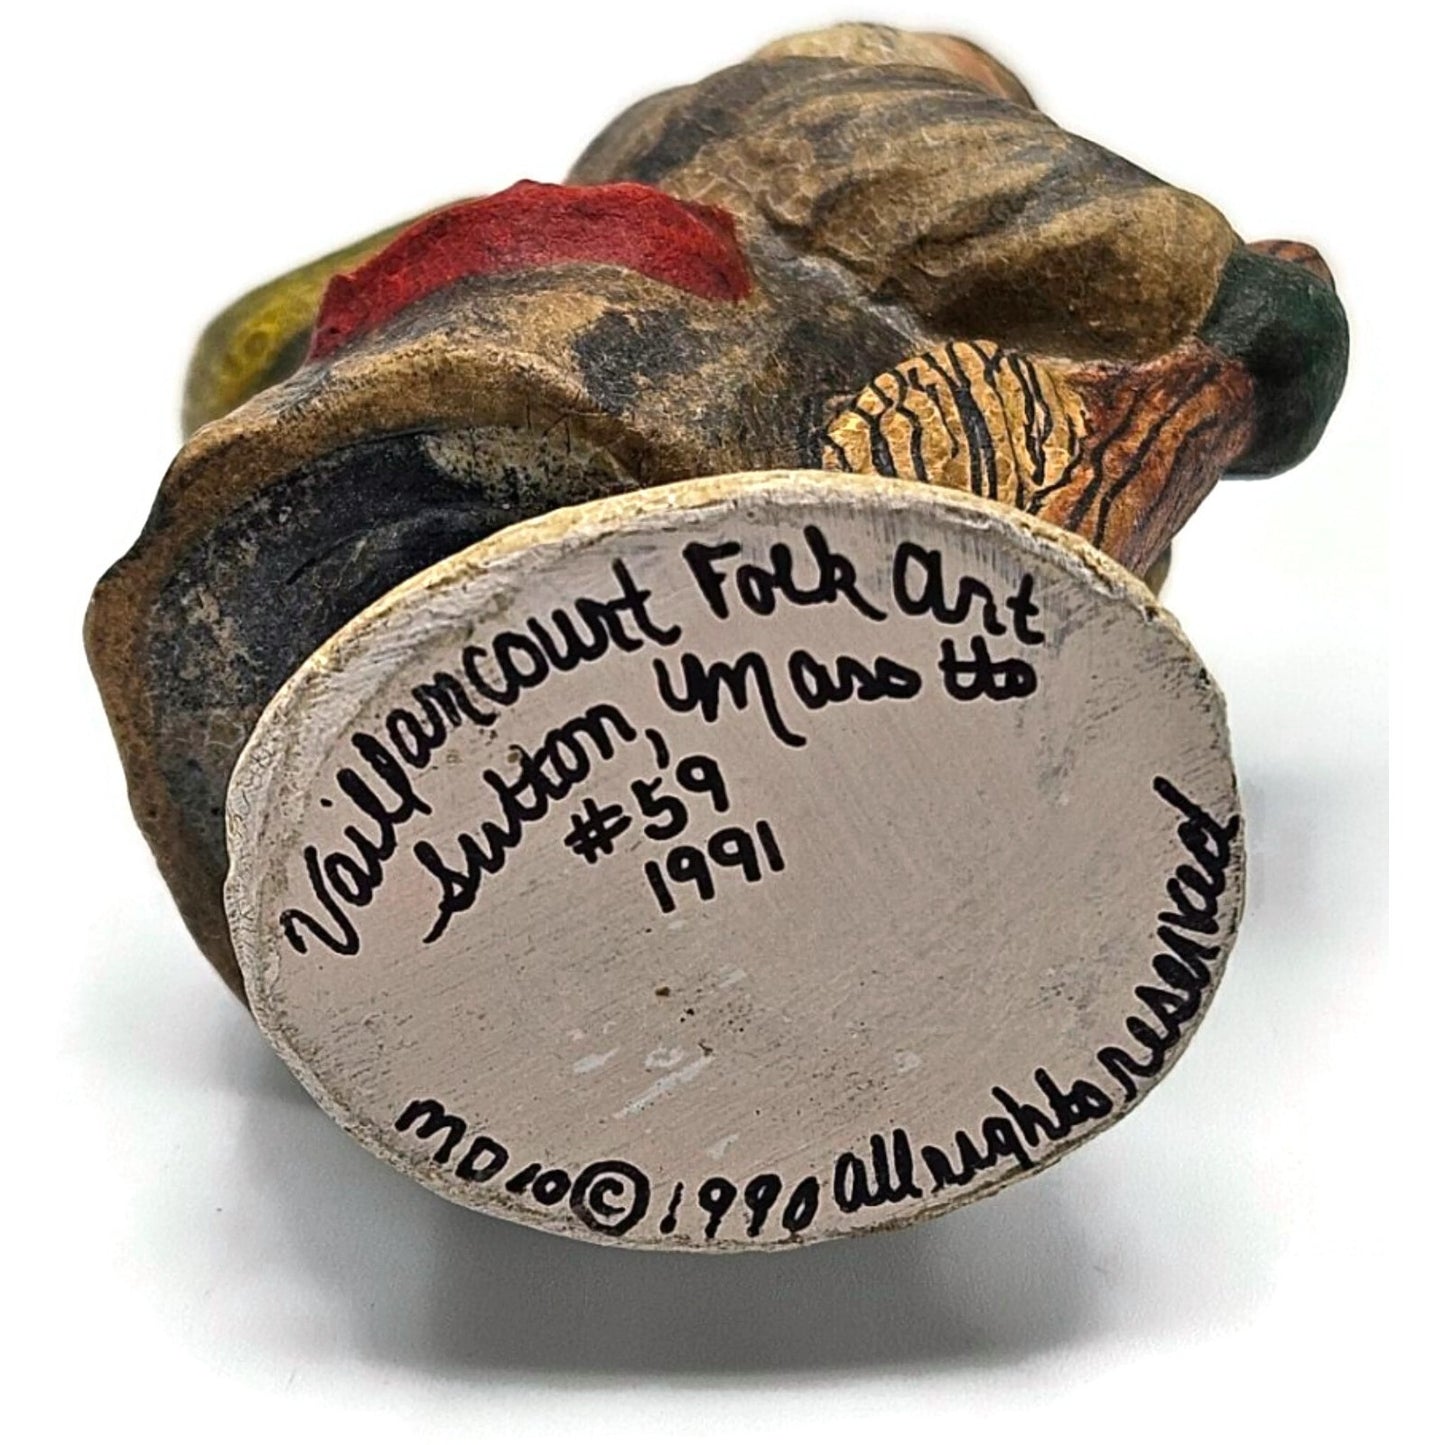 Vaillancourt Folk Art
Sutton, Mass
#59
1991
© 1990 All rights reserved